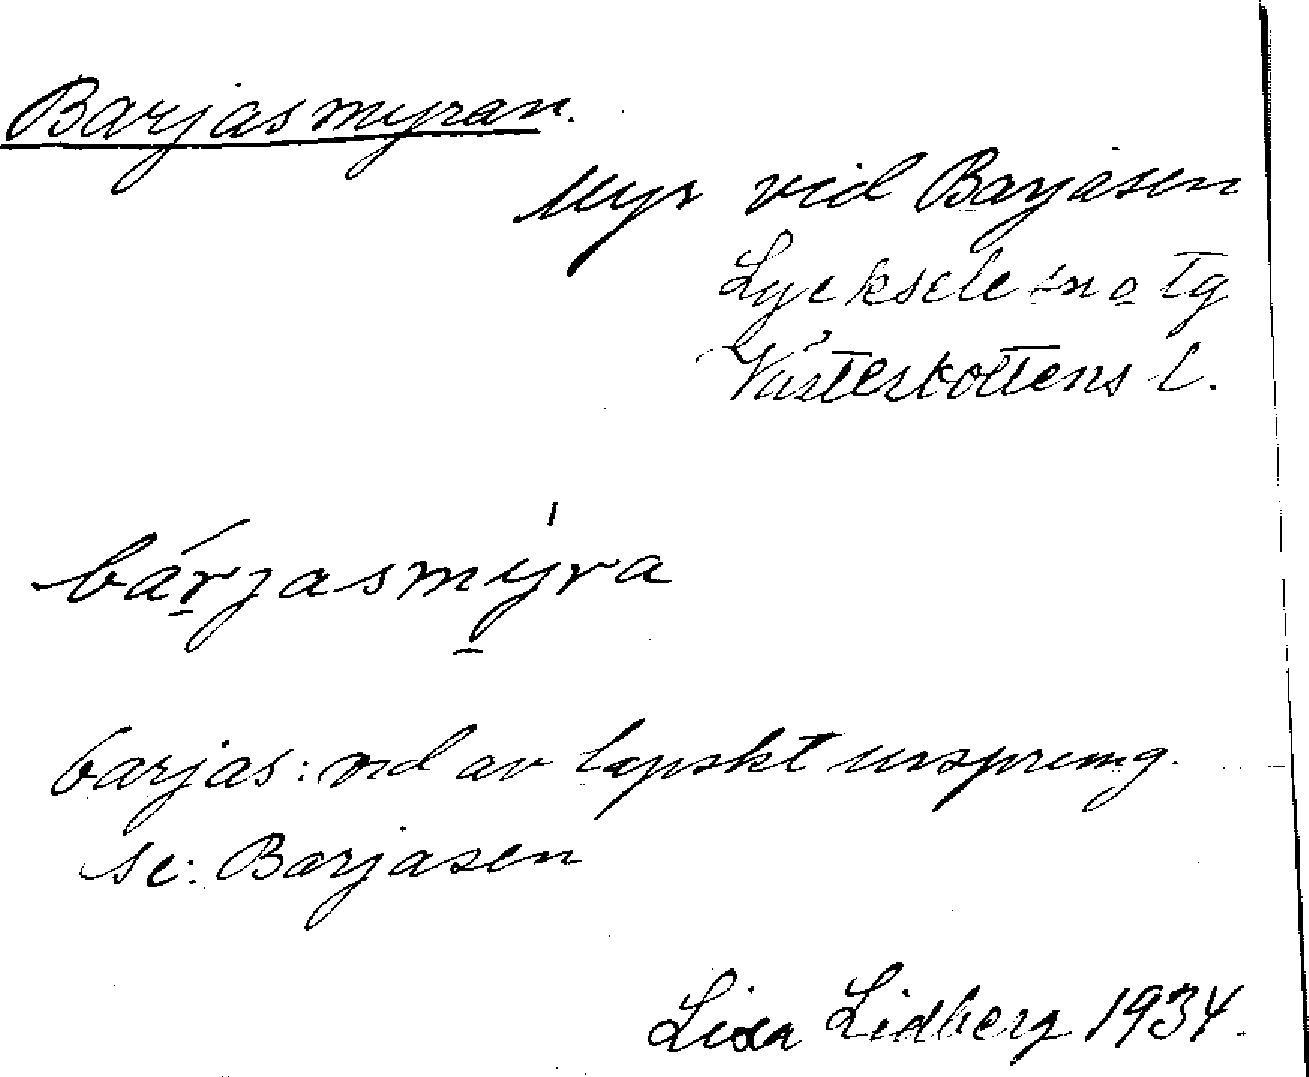 Barjasmyran.
Myr vid Barjasen
Lycksele sn o tg
Västerbottens l.
bárjasmýra
barjas: ord av lapskt ursprung.
se: Barjasen
Lisa Lidberg 1934.